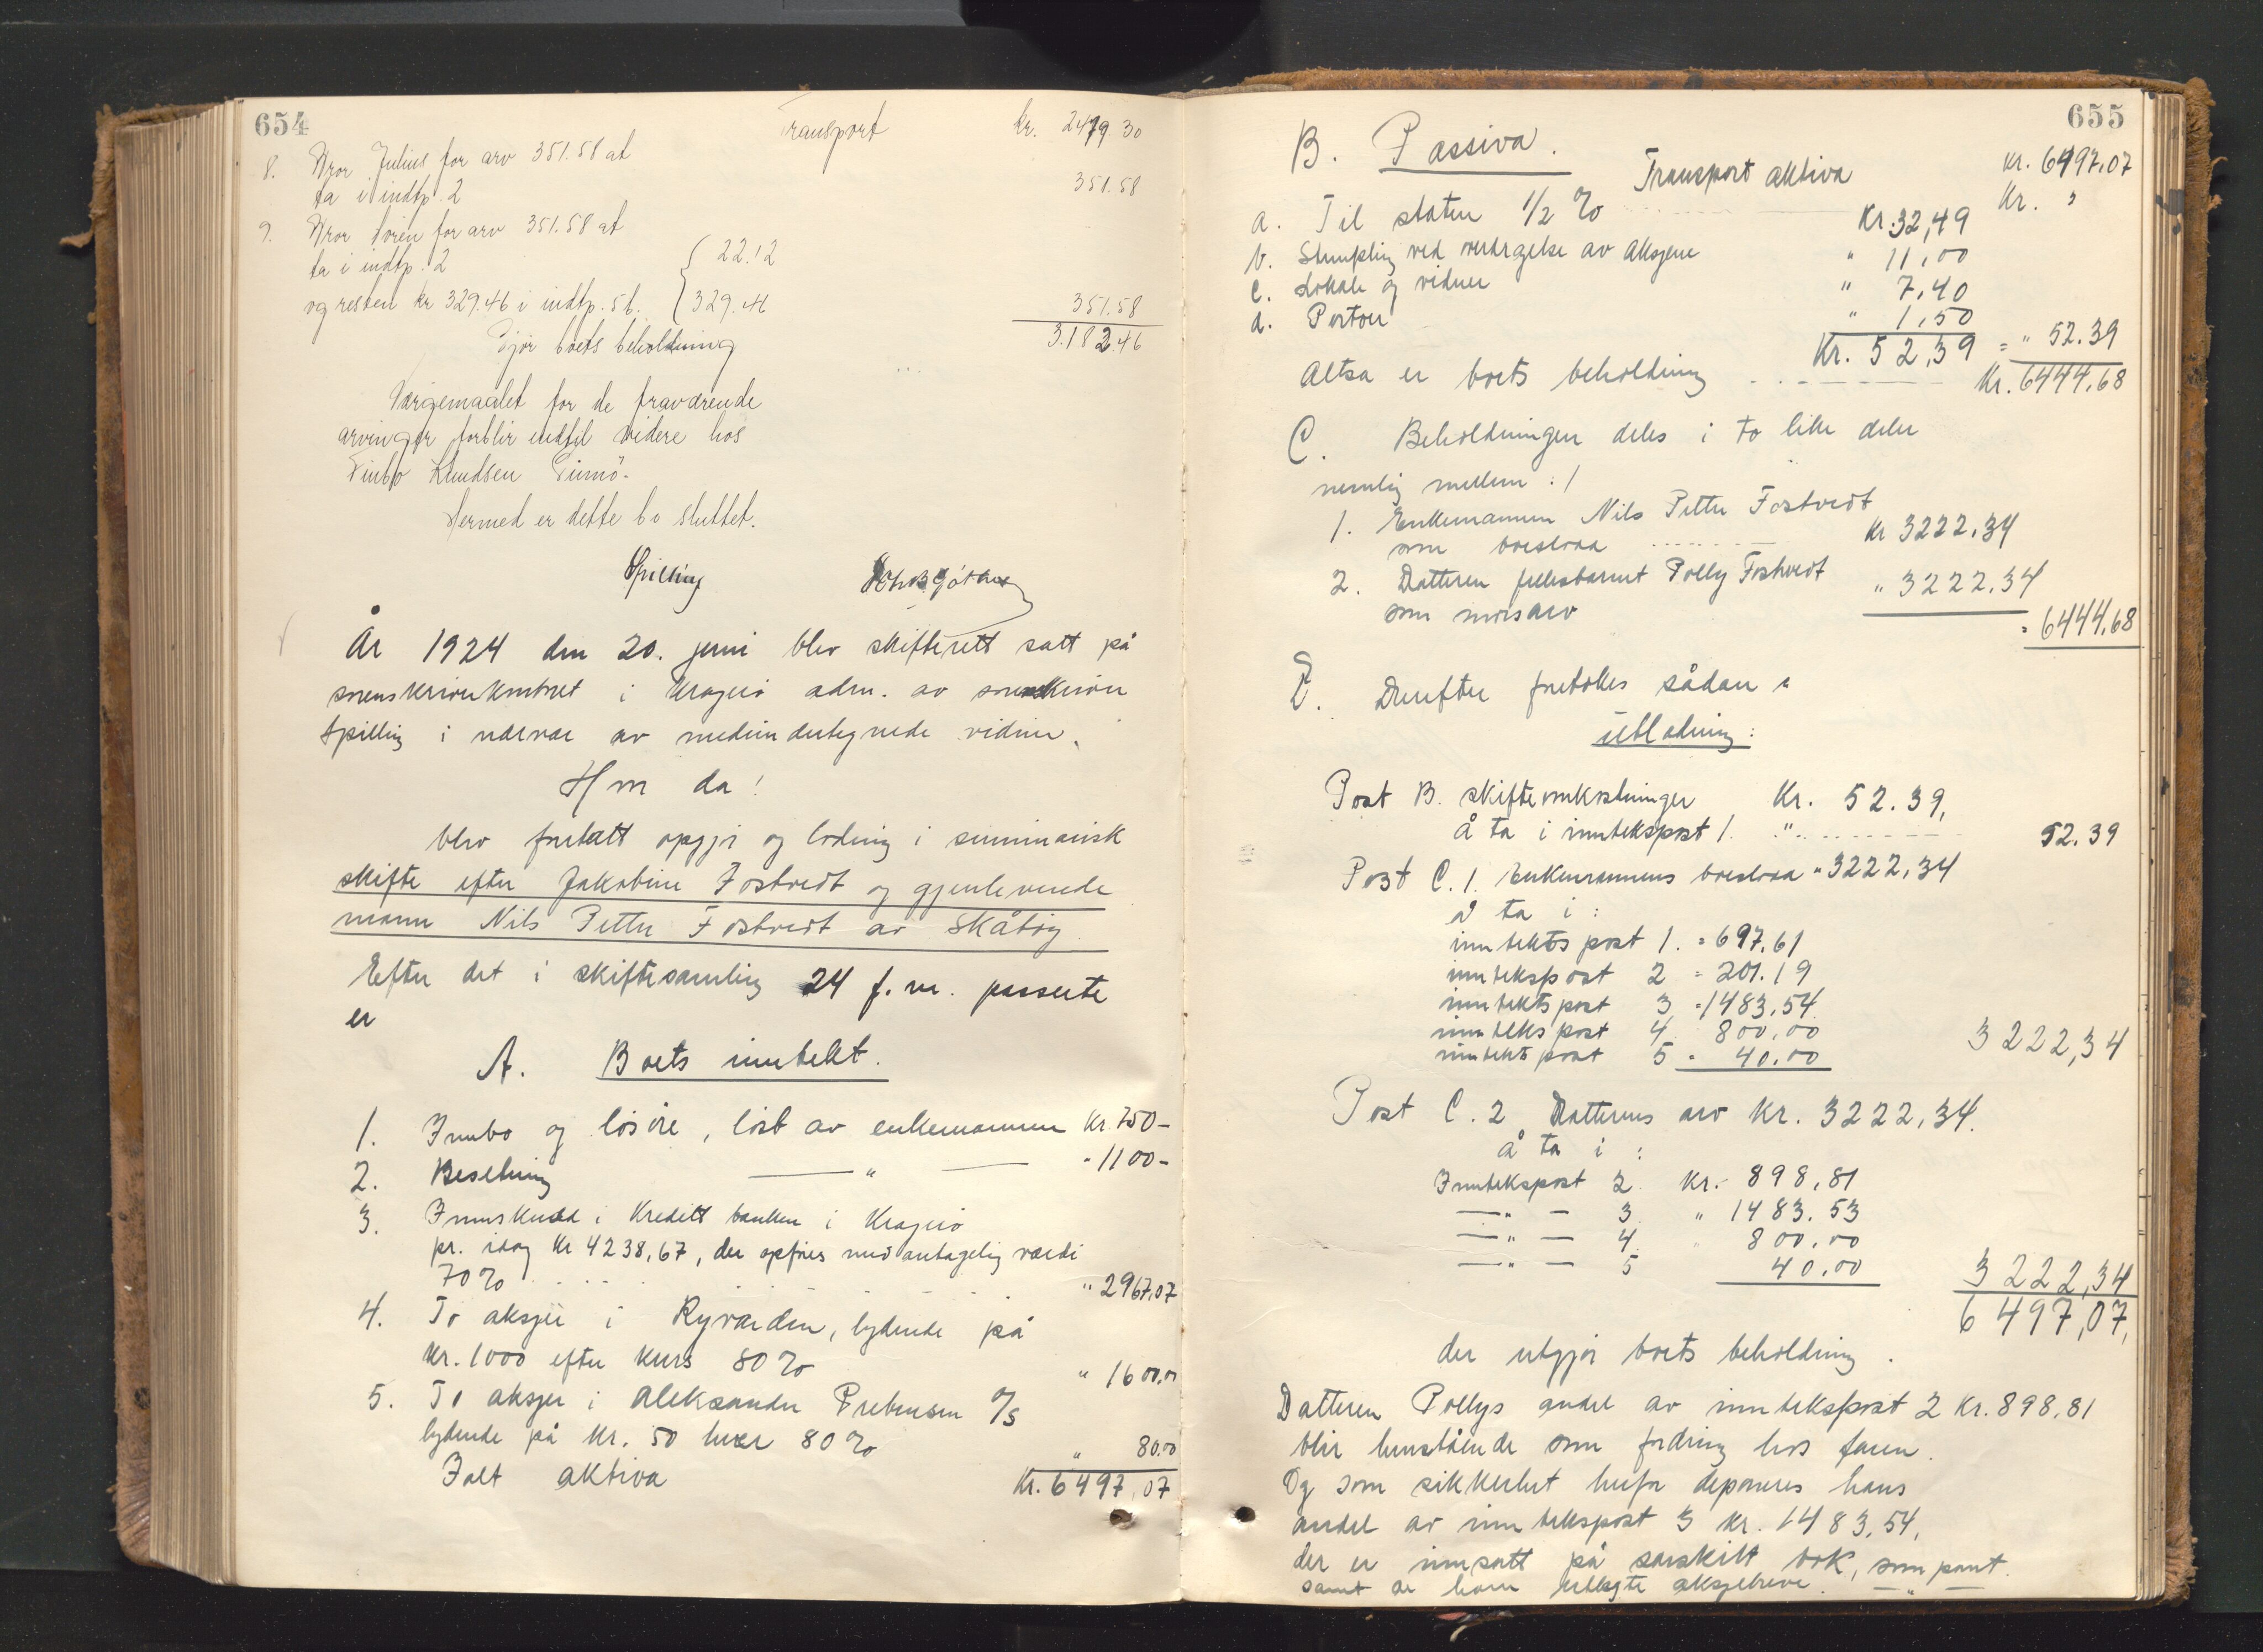 654
Transport kr. 2479.30
8. Bror Julius for arv 351.58 at
ta i indtp. 2 351.58
9. Bror Sören for arv 351.58 at
ta i indtp. 2 22.12
og resten kr 329.46 i indtp. 5 b. 329.46 351.58
Gjør boets beholdning 3.182.46
Værgemaalet for de fraværende
arvinger forblir indtil videre hos
Knudsen
Hermed er dette bo sluttet.
Spilling
År 1924 den 20. juni blev skifterett satt på
sorenskriverkontoret i Kragerø adm. av sorenskriver
Spilling i nærvær av medundertegnede vidner.
Hvor da!
blev foretatt opgjør og lodning i summarisk
skifte efter Jakobine Fostvedt og gjenlevende
mann Nils Petter Fostvedt av Skåtøy.
Efter det i skiftesamling 24 f.m. passerte
er
A. Boets inntekt.
1. Innbo og løsøre, løst av enkemannen Kr. 750-
2. Besetning — " — " 1100-
3. Innskudd i Kreditt banken i Kragerø
pr. idag Kr 4238,67, der opføres med antagelig værdi
70% " 2967,07
4. To aksjer i Ryvarden, lydende på
kr. 1000 efter kurs 80% " 1600,00
5. To aksjer i Aleksander Prebensen A/S
lydende på kr. 50 hver 80% " 80.00
Ialt aktiva Kr. 6497,07
655
B. Passiva.
Transport aktiva kr. 6497,07
Kr. "
a. Til staten 1/2 % Kr. 32,49
b. Stempling ved overdragelse av Aksjene " 11,00
c. Lokale og vidner " 7,40
d. Portoer " 1,50
Kr. 52,39 = " 52.39
Altsa er boets beholdning Kr. 6444,68
C. Beholdningen deles i to like deler
nemlig mellem :/
1. Enkemannen Nils Petter Fostvedt
som boeslodd Kr 3222,34
2. Datteren fellesbarnet Polly Fostvedt
som morsarv " 3222,34
= 6444,68
Derefter foretokes sådan
utlodning:
Post B. skifteomkostninger Kr. 52.39,
å ta i inntekspost 1. " 52.39
Post C. 1. Enkemannens boeslodd " 3222,34
å ta i :
inntektspost 1. = 697,61
inntekspost 2 = 201.19
inntektspost 3 = 1483,54
inntekspost 4. 800,00
inntektspost 5 - 40.00 3222,34
Post C. 2 Datterens arv Kr. 3222,34.
å ta i :
Inntekspost 2. Kr. 898,81
— " — 3. " 1483.53
— " — 4. " 800,00
— " — 5 40,00 3222,34
6497,07,
der utgjør boets beholdning.
Datteren Pollys andel av inntekspost 2 Kr. 898,81
blir henstående som fordring hos faren.
Og som sikkerhet herfor deponeres hans
andel av inntekspost 3 kr. 1483,54,
der er innsatt på særskilt bok, som pant.
samt de ham utlagte aksjebreve. — " —